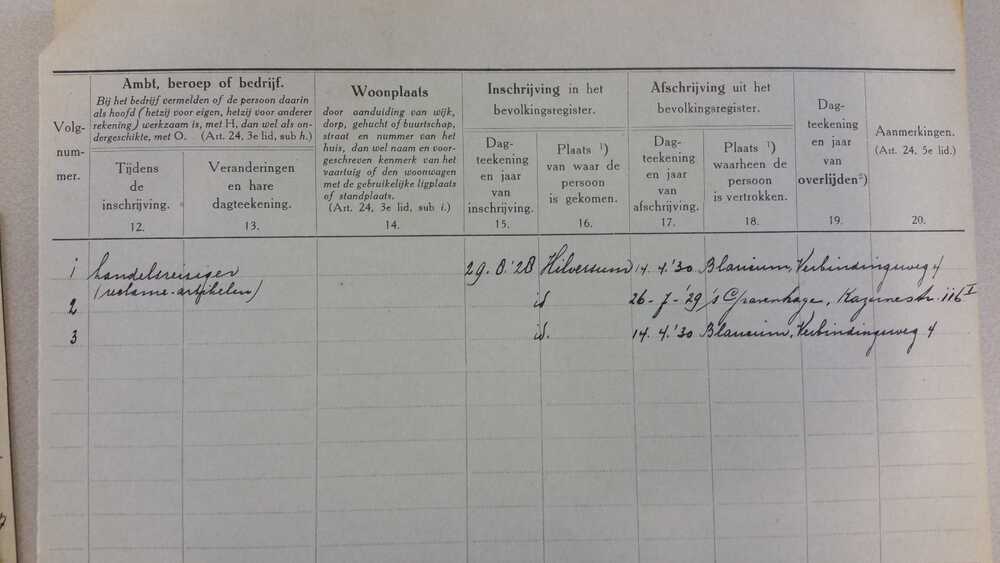 Volg-
num-
mer.
Ambt, beroep of bedrijf.
Bij het bedrijf vermelden of de persoon daarin
als hoofd (hetzij voor eigen, hetzij voor anderer
rekening) werkzaam is, met H, dan wel als on-
dergeschikte, met O. (Art. 24, 3e lid, sub h.)
Tijdens
de
inschrijving.
12.
Veranderingen
en hare
dagteekening.
13.
Woonplaats
door aanduiding van wijk,
dorp, gehucht of buurtschap,
straat en nummer van het
huis, dan wel naam en voor-
geschreven kenmerk van het
vaartuig of den woonwagen
met de gebruikelijke ligplaats
of standplaats.
(Art. 24, 3e lid, sub i.)
14.
Inschrijving in het
bevolkingsregister.
Dag-
teekening
en jaar
van
inschrijving.
15.
Plaats ¹)
van waar de
persoon
is gekomen.
16.
Afschrijving uit het
bevolkingsregister.
Dag-
teekening
en jaar
van
afschrijving.
17.
Plaats ¹)
waarheen de
persoon
is vertrokken.
18.
Dag-
teekening
en jaar
van
overlijden²)
19.
Aanmerkingen.
(Art. 24, 5e lid.)
20.
1 handelsreiziger 29.8.'28 Hilversum 14.4.'30 Blaricum, Verbindingsweg 4
(reclame-artikelen)
2 id 26-7-'29 's Gravenhage, Kazernestr. 116 I
3 id. 14.4.'30 Blaricum, Verbindingsweg 4